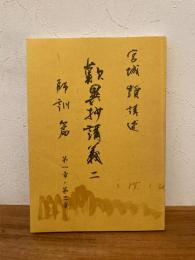 宮城顗講述
歎異抄講義二
師訓篇
第一章・第二章